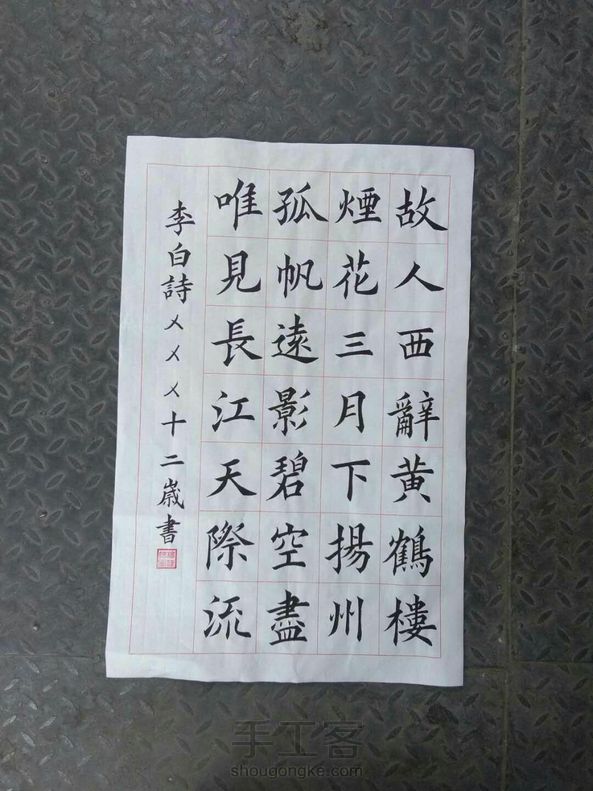 故人西辭黃鶴樓
煙花三月下揚州
孤帆遠影碧空盡
唯見長江天際流
李白詩㐅㐅㐅十二嵗書
手工客
shougongke.com